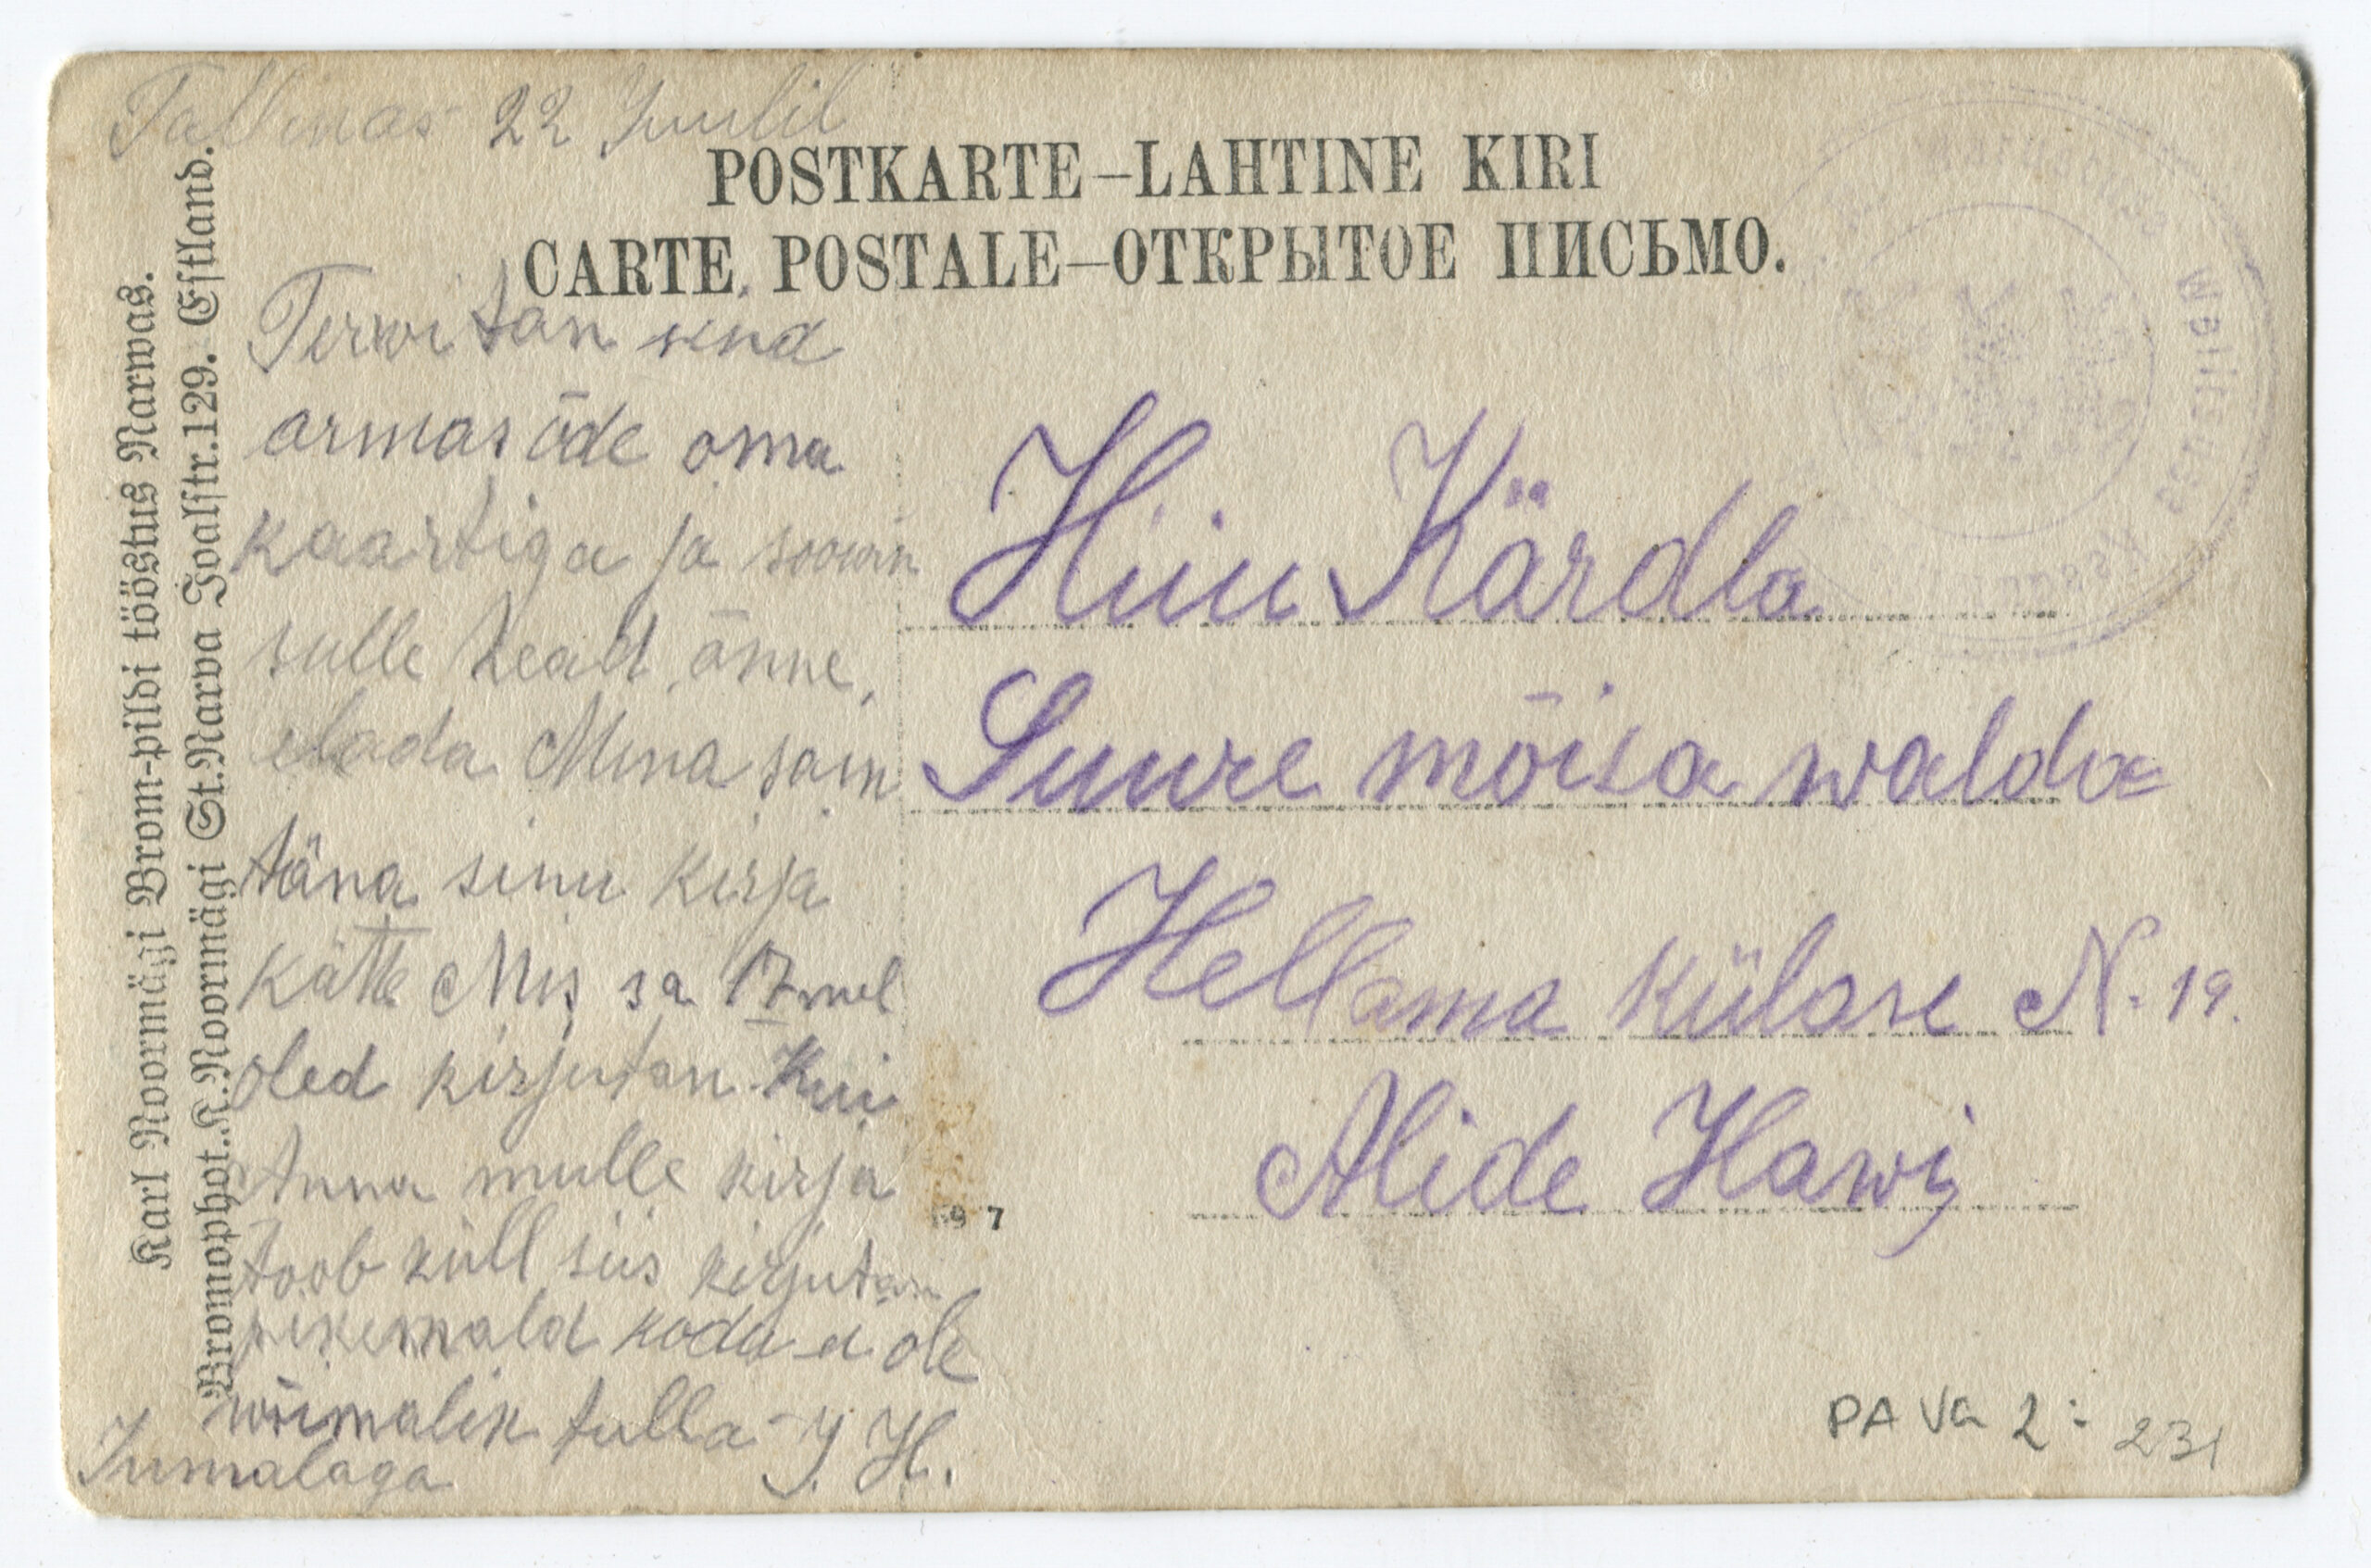 Tallinas 22 Juulil
POSTKARTE–LAHTINE KIRI
CARTE POSTALE–ОТКРЫТОЕ ПИСЬМО.
Karl Noormägi Brom-pildi tööstus Narwas.
Bromophot. K. Noormägi St. Narva Joalstr. 129. Estland.
Terwitan sind
armas öde oma
kaartiga ja soowin
sulle head õnne,
elada Mina sain
täna sinu kirja
kätte Mis sa 17mel
oled kirjutan Kui
Anna mulle kirja
toob küll siis kirjutan
pikemald kodu ei ole
wõimalik tulla J. H.
Jumalaga
Hiiu Kärdla
Suure mõisa walda=
Hellama külase N. 19.
Alide Hawi
697
PA Va 2: 231